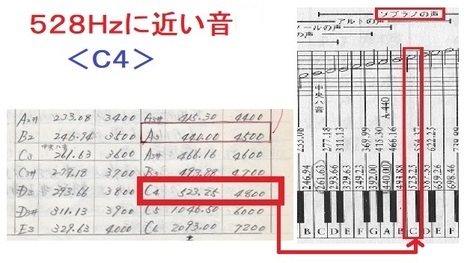 528Hzに近い音
＜C4＞
A₂# 233.08 3400 A₃# 415.30 4400
B₂ 246.94 3500 A₃ 440.00 4500
C₃ 261.63 3600 A₃# 466.16 4600
C₃# 3700 B₃ 493.88 4700
D₃ 293.66 3800 C₄ 523.25 4800
D₃# 311.13 3900 C₅ 1046.50 6000
E₃ 329.63 4000 C₆ 2093.00 7200
ソプラノの声
アルトの声
ノールの声
A-440
277.18
311.13
466.16
622.25
246.94
261.63
293.66
329.63
349.23
392.00
440.00
493.88
523.25
587.33
659.26
698.46
B C D E F G A B C D E F